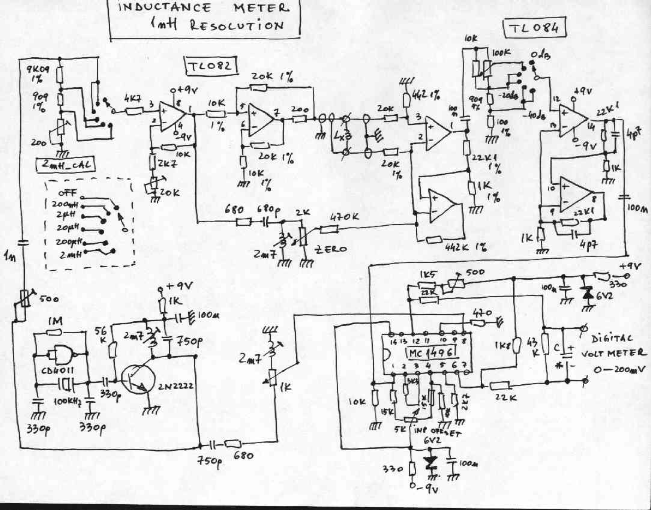 INDUCTANCE METER
1nH RESOLUTION
TL082
TL084
9K09
1%
909
1%
200
2mH_CAL
OFF
200nH
2µH
20µH
200µH
2mH
4K7
3
2
8
4
1
+9V
-9V
10K
2K7
20K
10K
1%
20K 1%
5
6
7
200
20K 1%
10K
1%
Lx
20K
1%
20K
1%
442 1%
3
2
1
100n
22K1
1%
1K
1%
442K 1%
10K
100K
909
1%
100
1%
0dB
-20dB
-40dB
12
13
14
+9V
-9V
22K1
4p7
1K
10
9
8
22K1
4p7
1K
100n
680
680p
2m7
2K
ZERO
470K
1n
500
1M
CD4011
100KHz
330p
330p
330p
56
K
2m7
+9V
1K
100n
750p
2N2222
2m7
1K
750p
680
1K5
500
22K
470
14
13
12
11
10
9
8
MC1496
1
2
3
4
5
6
7
10K
15K
5K
INP OFFSET
6V2
2K7
330
-9V
100n
1K8
43
K
C
22K
100n
6V2
330
+9V
DIGITAL
VOLTMETER
0-200mV